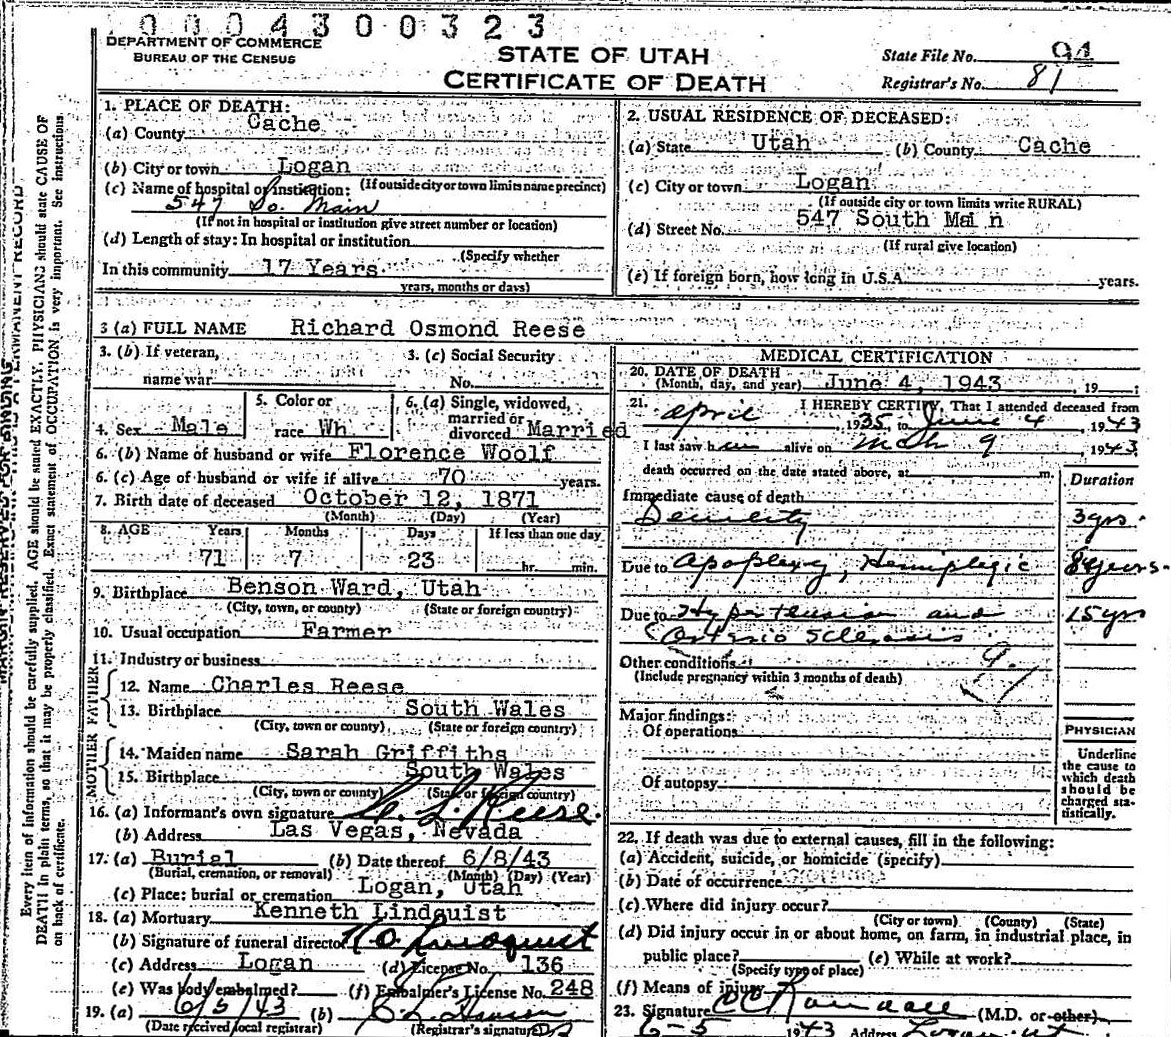 0004300323
DEPARTMENT OF COMMERCE
BUREAU OF THE CENSUS
STATE OF UTAH
CERTIFICATE OF DEATH
State File No. 94
Registrar's No. 81
1. PLACE OF DEATH:
(a) County Cache
(b) City or town Logan
(c) Name of hospital or institution: (If outside city or town limits name precinct)
547 So. Main
(If not in hospital or institution give street number or location)
(d) Length of stay: In hospital or institution
(Specify whether
In this community 17 Years
years, months or days)
2. USUAL RESIDENCE OF DECEASED:
(a) State Utah (b) County Cache
(c) City or town Logan
(If outside city or town limits write RURAL)
(d) Street No. 547 South Main
(If rural give location)
(e) If foreign born, how long in U.S.A. years.
3 (a) FULL NAME Richard Osmond Reese
3. (b) If veteran,
name war
3. (c) Social Security
No.
4. Sex Male
5. Color or
race Wh
6. (a) Single, widowed,
married or
divorced Married
6. (b) Name of husband or wife Florence Woolf
6. (c) Age of husband or wife if alive 70 years.
7. Birth date of deceased October 12, 1871
(Month) (Day) (Year)
8. AGE Years Months Days If less than one day
71 7 23 hr. min.
9. Birthplace Benson Ward, Utah
(City, town, or county) (State or foreign country)
10. Usual occupation Farmer
11. Industry or business
FATHER
12. Name Charles Reese
13. Birthplace South Wales
(City, town or county) (State or foreign country)
MOTHER
14. Maiden name Sarah Griffiths
15. Birthplace South Wales
(City, town or county) (State or foreign country)
16. (a) Informant's own signature C. L. Reese.
(b) Address Las Vegas, Nevada
17. (a) Burial (b) Date thereof 6/8/43
(Burial, cremation, or removal) (Month) (Day) (Year)
(c) Place: burial or cremation Logan, Utah
18. (a) Mortuary Kenneth Lindquist
(b) Signature of funeral director K O Lindquist
(c) Address Logan (d) License No. 136
(e) Was body embalmed? (f) Embalmer's License No. 248
19. (a) 6/5/43 (b)
(Date received local registrar) (Registrar's signature)
MEDICAL CERTIFICATION
20. DATE OF DEATH
(Month, day, and year) June 4, 1943, 19 ;
21. I HEREBY CERTIFY, That I attended deceased from
April, 1935, to June 4, 1943
I last saw him alive on Mch 9, 1943,
death occurred on the date stated above, at m.
Duration
Immediate cause of death
3 yrs.
Due to Apoplexy, Hemiplegic 8 years.
Due to Hypertension and 15 yrs
Arterio Sclerosis
Other conditions
(Include pregnancy within 3 months of death)
Major findings:
Of operations
Of autopsy
PHYSICIAN
Underline
the cause to
which death
should be
charged sta-
tistically.
22. If death was due to external causes, fill in the following:
(a) Accident, suicide, or homicide (specify)
(b) Date of occurrence
(c) Where did injury occur?
(City or town) (County) (State)
(d) Did injury occur in or about home, on farm, in industrial place, in
public place? (e) While at work?
(Specify type of place)
(f) Means of injury
23. Signature Randall (M.D. or other)
6-5 1943 Address Logan ut
MARGIN RESERVED FOR BINDING
Every item of information should be carefully supplied. AGE should be stated EXACTLY. PHYSICIANS should state CAUSE OF
DEATH in plain terms, so that it may be properly classified. Exact statement of OCCUPATION is very important. See instructions
on back of certificate.